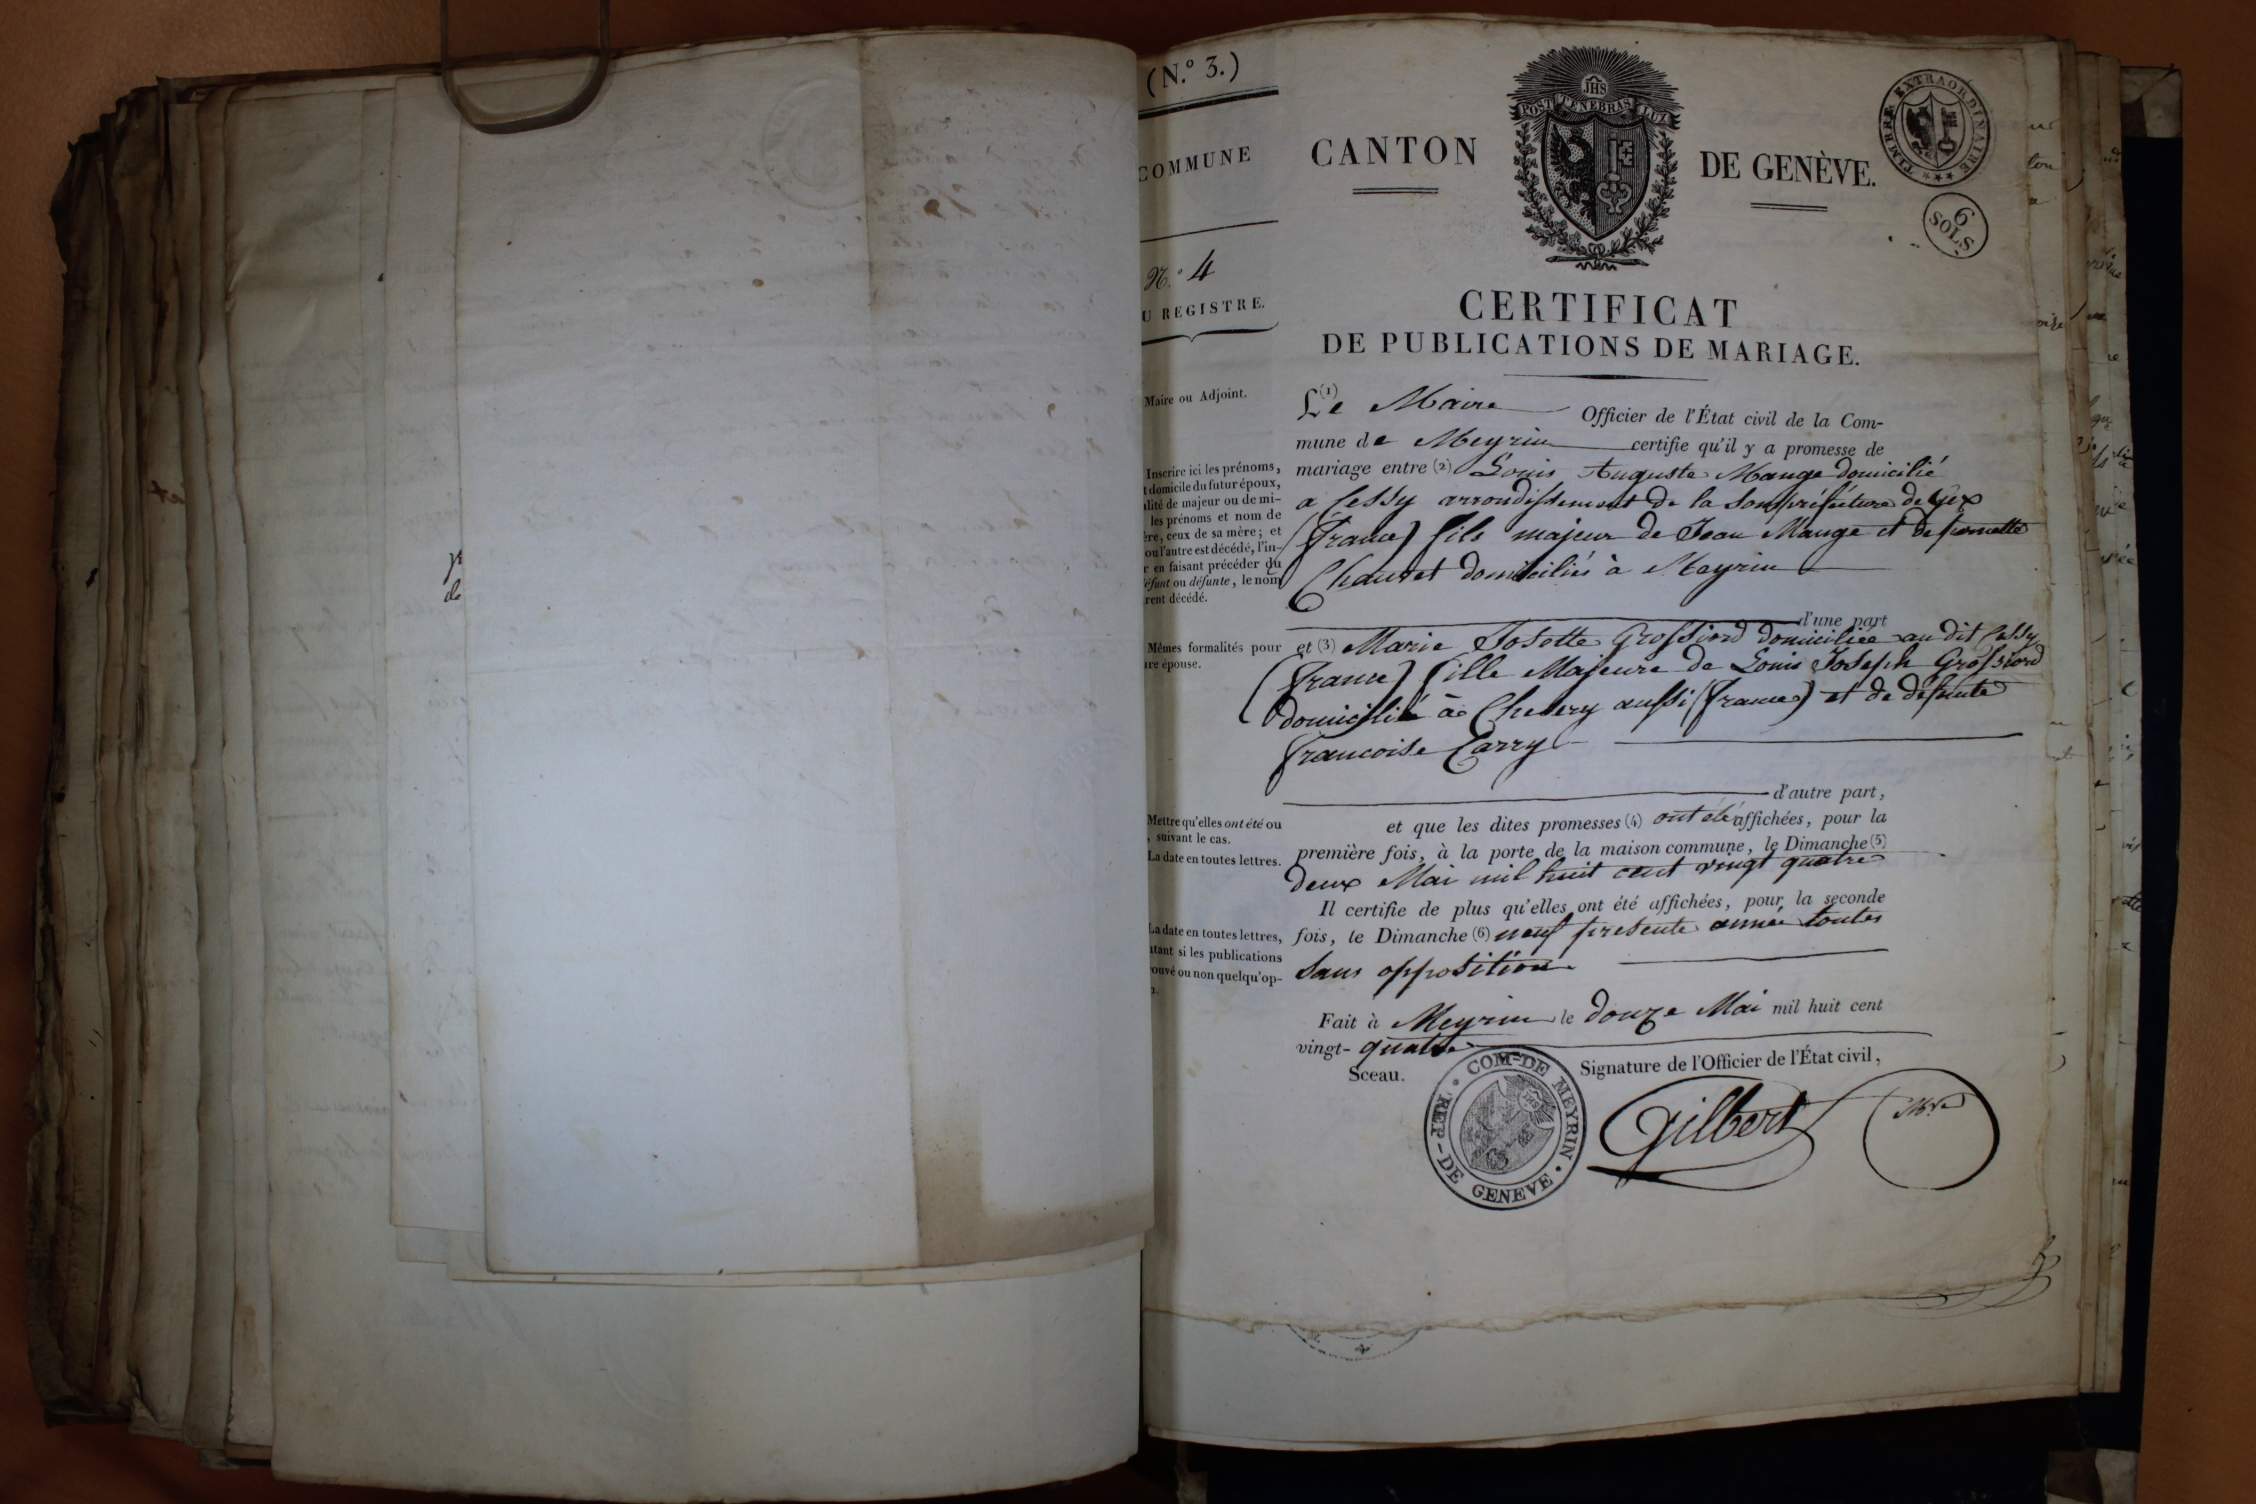 (N.° 3.)
COMMUNE
N.° 4
U REGISTRE.
Maire ou Adjoint.
Inscrire ici les prénoms,
t domicile du futur époux,
alité de majeur ou de mi-
les prénoms et nom de
ère, ceux de sa mère; et
ou l'autre est décédé, l'in-
r en faisant précéder du
éfunt ou défunte, le nom
rent décédé.
Mêmes formalités pour
ure épouse.
Mettre qu'elles ont été ou
, suivant le cas.
La date en toutes lettres.
La date en toutes lettres,
utant si les publications
ouvé ou non quelqu'op-
n.
JHS
POST TENEBRAS LUX
CANTON DE GENÈVE.
TIMBRE EXTRAORDINAIRE ***
6
SOLS
CERTIFICAT
DE PUBLICATIONS DE MARIAGE.
Le (1) Maire Officier de l'État civil de la Com-
mune de Meyrin certifie qu'il y a promesse de
mariage entre (2) Louis Auguste Mange domicilié
a Cessy arrondissement de la Souspréfecture de Gex
(france) fils majeur de Jean Mange et de pernette
Chauvet domiciliés à Meyrin
d'une part
et (3) Marie Josette Grossiord domiciliée au dit Cessy
(france) fille Majeure de Louis Joseph Grossiord
domicilié à Chesery aussi (france) et de défunte
francoise Carry
d'autre part,
et que les dites promesses (4) ont été affichées, pour la
première fois, à la porte de la maison commune, le Dimanche (5)
deux Mai mil huit cent vingt quatre
Il certifie de plus qu'elles ont été affichées, pour la seconde
fois, le Dimanche (6) neuf presente année toutes
sans opposition
Fait à Meyrin le douze Mai mil huit cent
vingt- quatre
Sceau. Signature de l'Officier de l'État civil,
COM-DE MEYRIN · REP-DE GENEVE ·
JHS
Gilbert